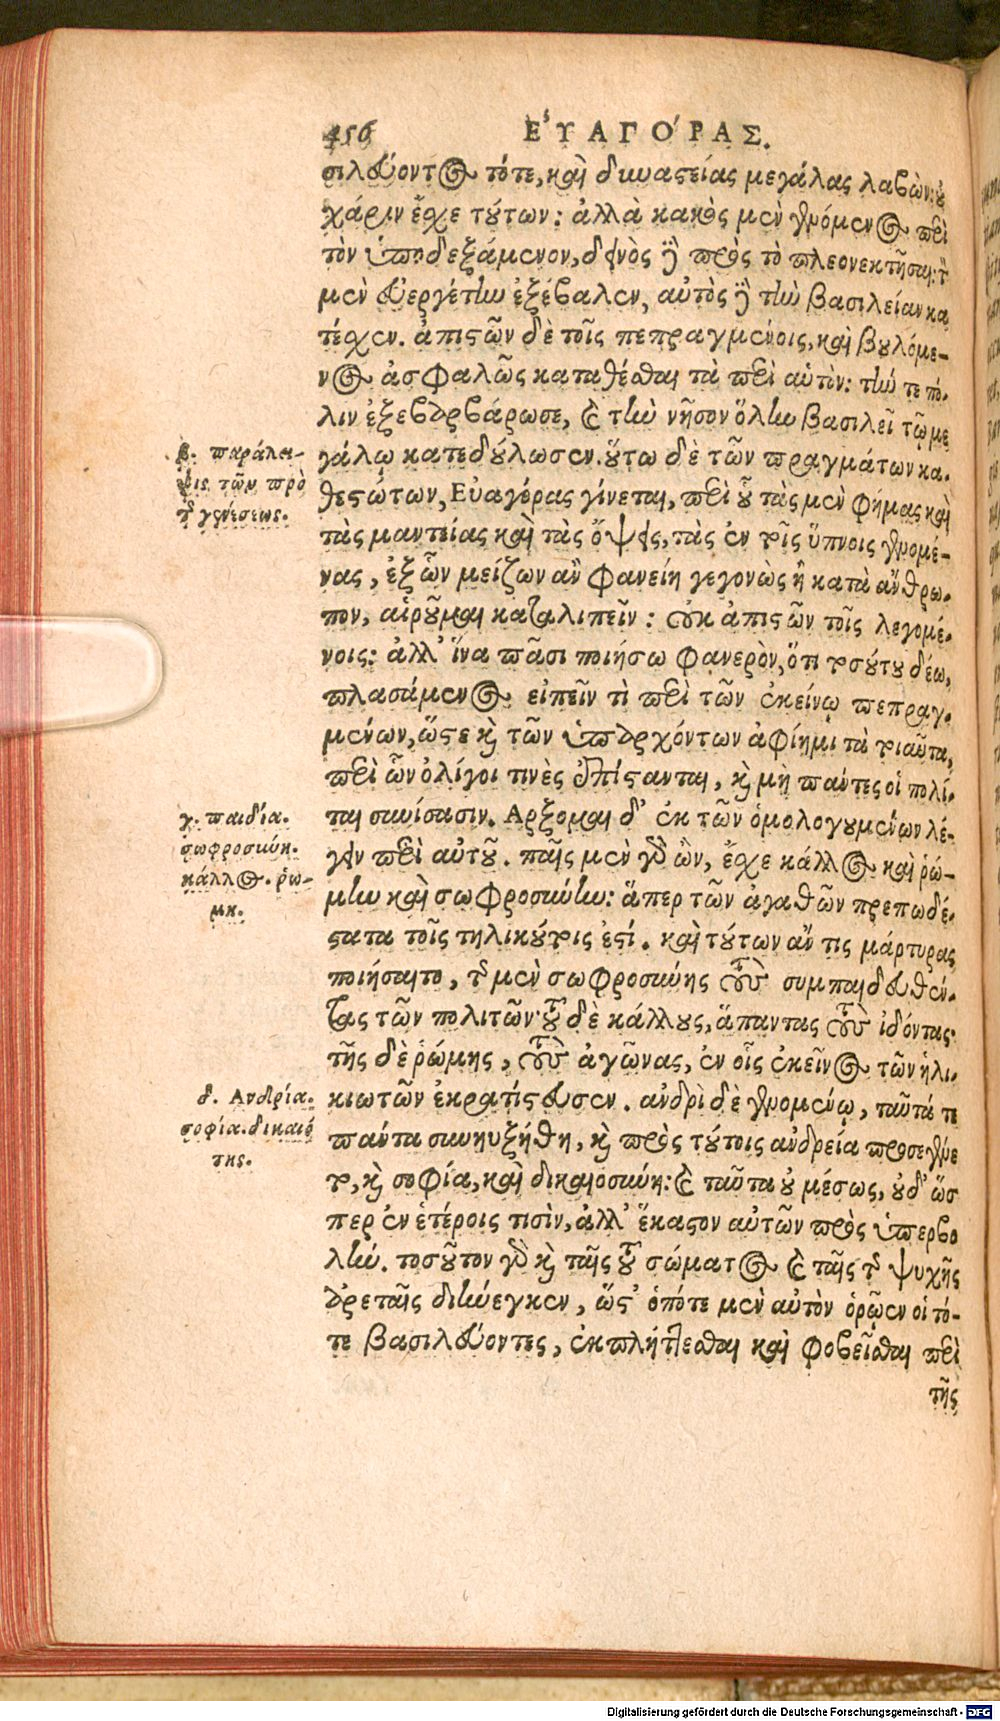 456 ΕὐΑΓΌΡΑΣ.
σιλεύοντος τότε, καὶ δυναστείας μεγάλας λαβὼν: οὐ
χάριν ἔχε τούτων: ἀλλὰ κακὸς μὲν γενόμενος περὶ
τὸν ὑποδεξάμενον, δεινὸς δὲ πρὸς τὸ πλεονεκτῆσαι: τ̀
μὲν εὐεργέτην ἐξέβαλεν, αὐτὸς δὲ τὴν βασιλείαν κα
τέχεν. ἀπιστῶν δὲ τοῖς πεπραγμένοις, καὶ βουλόμε-
νος ἀσφαλῶς καταθέσθαι τὰ περὶ αὑτὸν: τήν τε πό-
λιν ἐξεβαρβάρωσε, καὶ τὴν νῆσον ὅλην βασιλεῖ τῷ με
β. παράλει-
ψις τῶν πρὸ
τ γενέσεως.
γάλῳ κατεδούλωσεν. οὕτω δὲ τῶν πραγμάτων κα-
θεστώτων, Εὐαγόρας γίνεται, περὶ οὗ τὰς μὲν φήμας καὶ
τὰς μαντείας καὶ τὰς ὄψεις, τὰς ἐν τοῖς ὕπνοις γενομέ-
νας, ἐξ ὧν μείζων ἂν φανείη γεγονὼς ἢ κατὰ ἄνθρω-
πον, αἱροῦμαι καταλιπεῖν: οὐκ ἀπιστῶν τοῖς λεγομέ-
νοις: ἀλλ' ἵνα πᾶσι ποιήσω φανερὸν, ὅτι τοσούτου δέω,
πλασάμενος εἰπεῖν τὶ περὶ τῶν ἐκείνῳ πεπραγ-
μένων, ὥστε καὶ τῶν ὑπαρχόντων ἀφίημι τὰ τοιαῦτα,
περὶ ὧν ὀλίγοι τινὲς ἐπίστανται, καὶ μὴ πάντες οἱ πολῖ-
γ. παιδία.
σωφροσύνη.
κάλλος. ῥώ-
μη.
ται συνίσασιν. Αρξομαι δ' ἐκ τῶν ὁμολογουμένων λέ-
γειν περὶ αὐτοῦ. παῖς μὲν γὰρ ὢν, ἔχε κάλλος καὶ ῥώ-
μην καὶ σωφροσύνην: ἅπερ τῶν ἀγαθῶν πρεπωδέ-
στατα τοῖς τηλικούτοις ἐστί. καὶ τούτων ἄν τις μάρτυρας
ποιήσαιτο, τῆς μὲν σωφροσύνης τοὺς συμπαιδευθέν-
τας τῶν πολιτῶν· τοῦ δὲ κάλλους, ἅπαντας τοὺς ἰδόντας·
τῆς δὲ ῥώμης, τοὺς ἀγῶνας, ἐν οἷς ἐκεῖνος τῶν ἡλι-
δ. Ανδρία.
σοφία. δικαιό
της.
κιωτῶν ἐκρατίστευσεν. ἀνδρὶ δὲ γενομένῳ, ταῦτά τε
πάντα συνηυξήθη, καὶ πρὸς τούτοις ἀνδρεία προσεγένε
το, καὶ σοφία, καὶ δικαιοσύνη: καὶ ταῦτα οὐ μέσως, οὐδ' ὥσ
περ ἐν ἑτέροις τισὶν, ἀλλ' ἕκαστον αὐτῶν πρὸς ὑπερβο
λήν. τοσοῦτον γὰρ καὶ ταῖς τοῦ σώματος καὶ ταῖς τῆς ψυχῆς
ἀρεταῖς διήνεγκεν, ὥστ' ὁπότε μὲν αὐτὸν ὁρῷεν οἱ τό-
τε βασιλεύοντες, ἐκπλήττεσθαι καὶ φοβεῖσθαι περὶ
τῆς
Digitalisierung gefördert durch die Deutsche Forschungsgemeinschaft - DFG